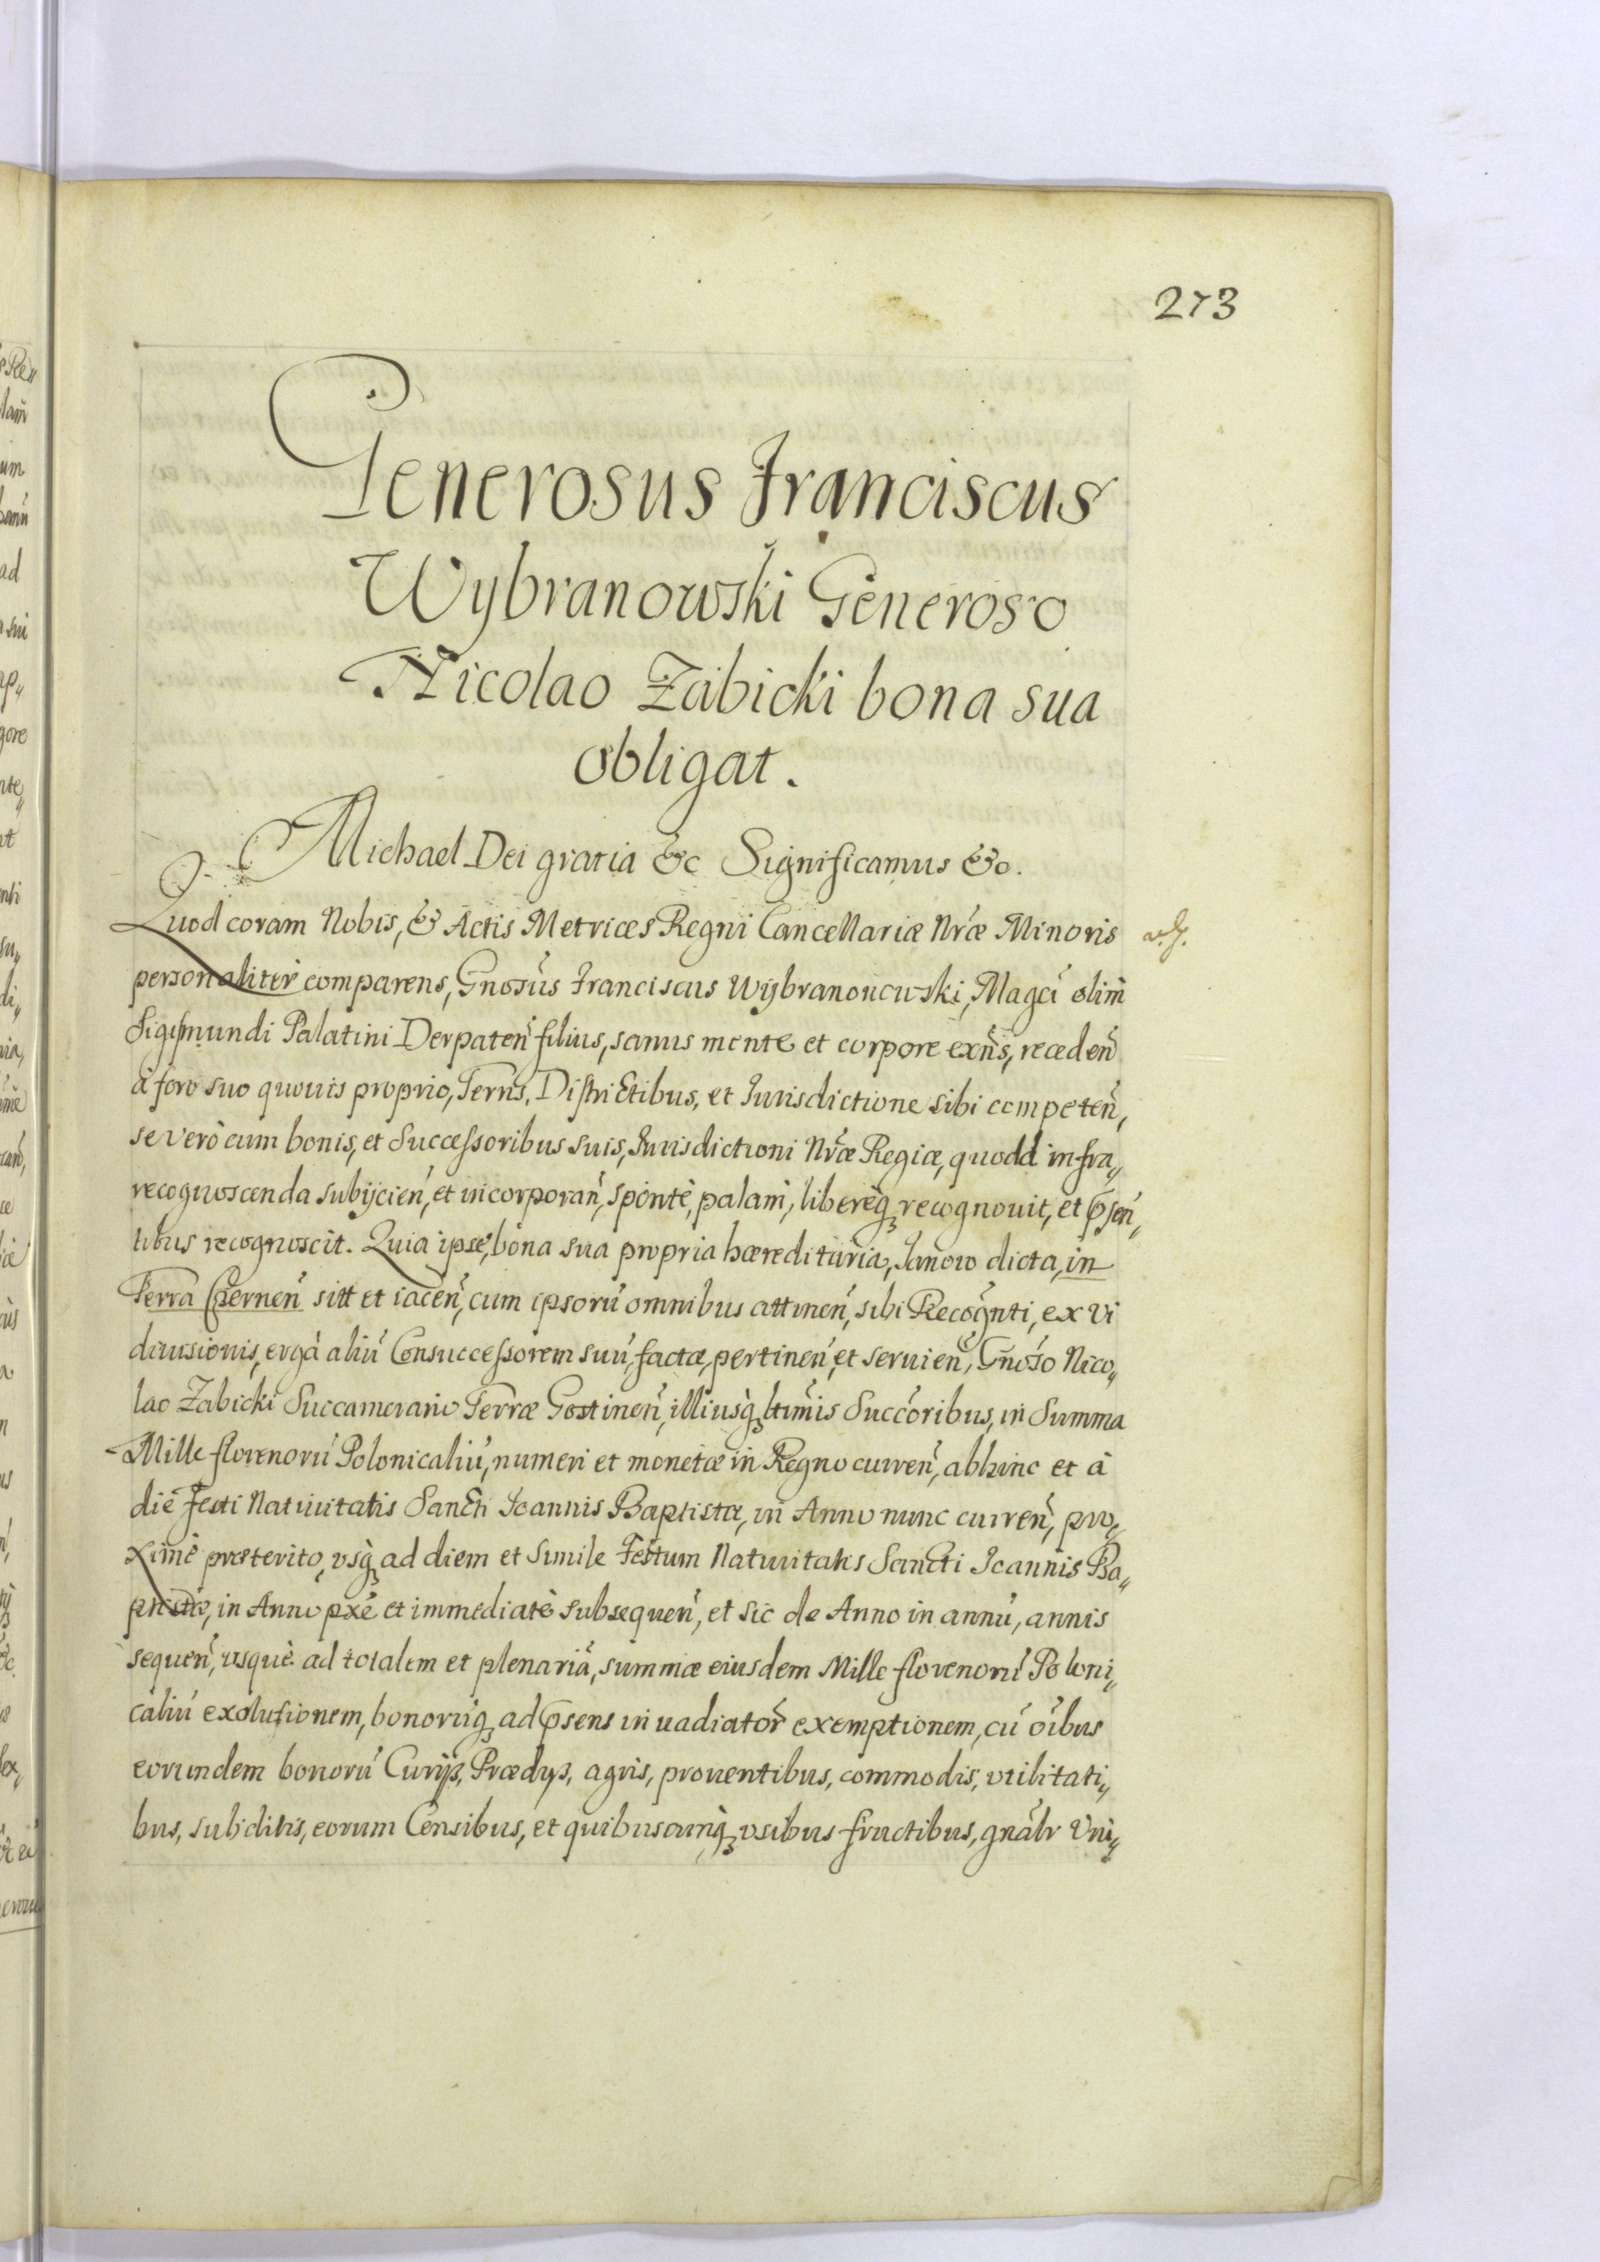 273
Generosus Franciscus
Wybranowski Generoso
Nicolao Zabicki bona sua
obligat.
Michael Dei gratia &c Significamus &c.
Quod coram Nobis, & Actis Metrices Regni Cancellariæ Nræ Minoris
personaliter comparens, Gnosus Franciscus Wybranowski, Magci olim
Sigismundi Palatini Derpaten filius, sanus mente et corpore exns, receden
à foro suo quovis proprio, Terris, Districtibus, et Iurisdictione sibi competen,
se verò cum bonis, et Successoribus suis, Iurisdictioni Nræ Regiæ, quoad infra„
recognoscenda subijcien, et incorporan, spontè, palam, liberèq recognouit, et psen„
tibus recognoscit. Quia ipse, bona sua propria hæreditaria, Janow dicta, in
Terra Chernen sitt et iacen, cum ipsorũ omnibus attinen, sibi Recognti, ex vi
diuisionis, ergà aliũ Consuccessorem suũ, factæ, pertinen, et seruien, Gnoso Nico„
lao Zabicki Succamerario Terræ Gostinen, illiusq ltimis Succoribus, in Summa
Mille florenorũ Polonicaliũ, numeri et monetæ in Regno curren, abhinc et à
die Festi Natiuitatis Sancti Ioannis Baptistæ, in Anno nunc curren, pro„
ximè præterito, vsq ad diem et simile Festum Natiuitatis Sancti Ioannis Ba„
ptistæ, in Anno pxè et immediatè subsequen, et sic de Anno in annũ, annis
sequen, vsque ad totalem et plenariã, summæ eiusdem Mille florenorũ Poloni„
caliũ exolutionem, bonorũq ad psens inuadiator exemptionem, cũ oibus
eorundem bonorũ Curijs, Prædijs, agris, prouentibus, commodis, vtilitati„
bus, subditis, eorum Censibus, et quibuscunq vsibus fructibus, gnalr Vni„